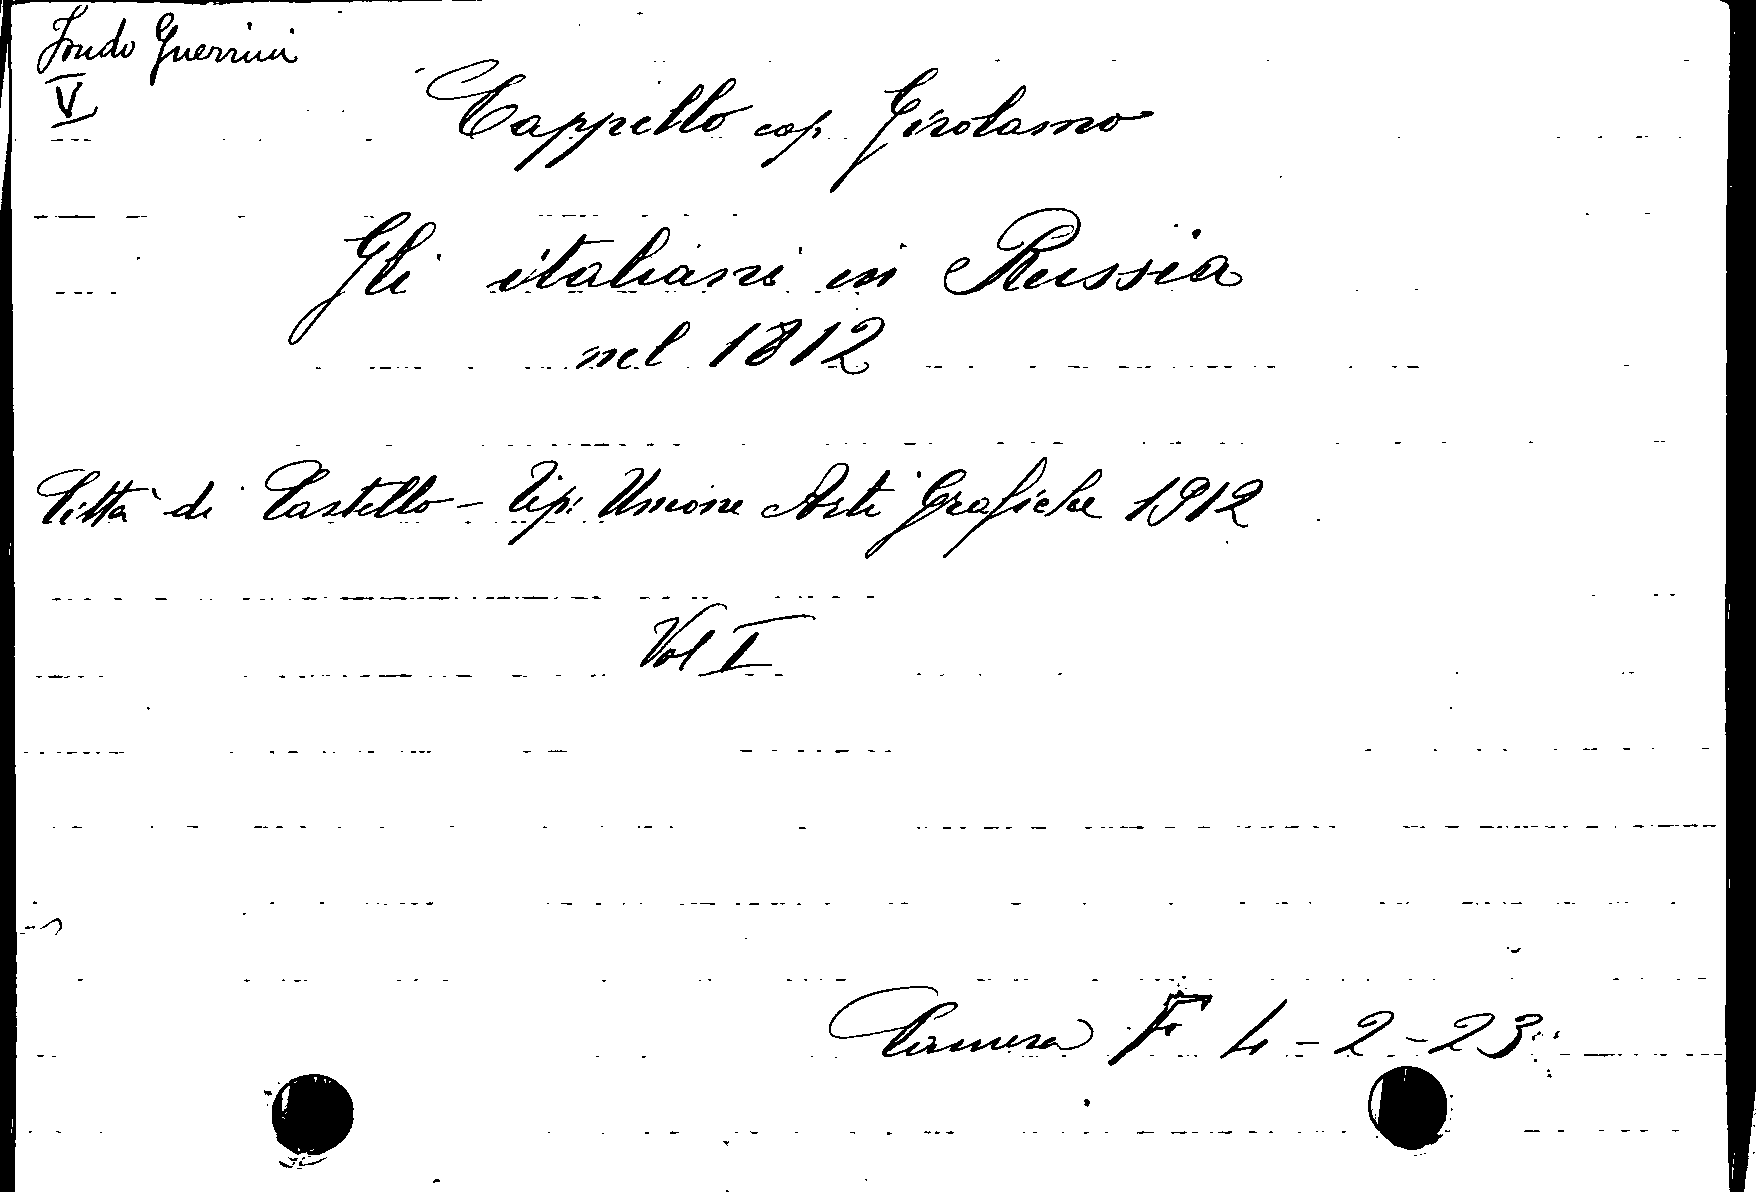 Fondo Guerrini
V
Cappello cap. Girolamo
Gli italiani in Russia
nel 1812
Città di Castello - Tip: Unione Arti Grafiche 1912
Vol I
Camera F 4-2-23